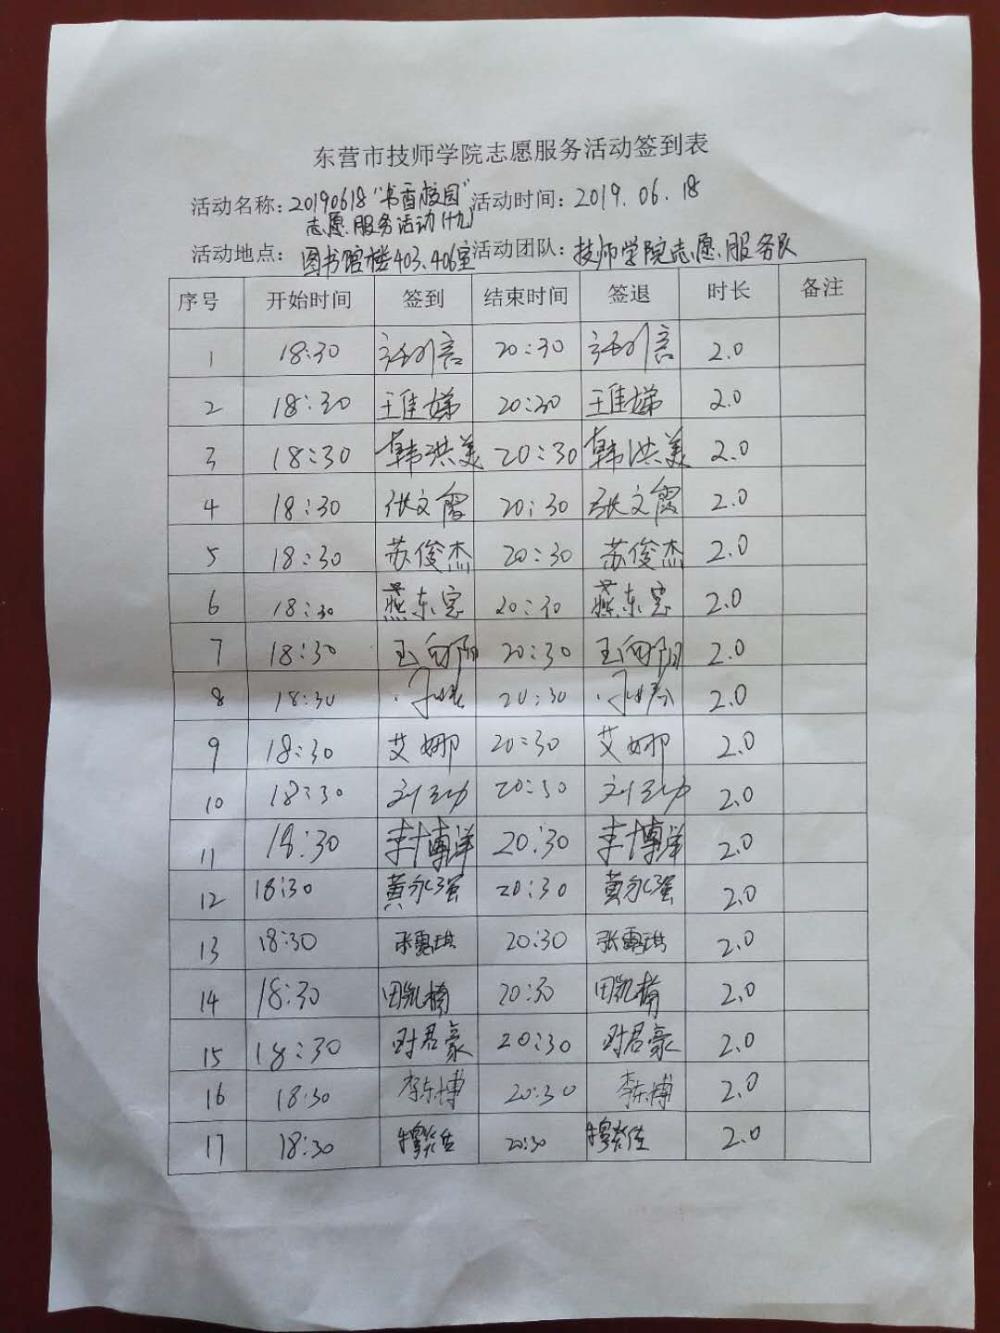 东营市技师学院志愿服务活动签到表
活动名称：20190618“书香校园”志愿服务活动（十九） 活动时间：2019.06.18
活动地点：图书馆楼403、406室 活动团队：技师学院志愿服务队
序号 开始时间 签到 结束时间 签退 时长 备注
1 18:30 20:30 2.0
2 18:30 王佳娣 20:30 王佳娣 2.0
3 18:30 韩洪美 20:30 韩洪美 2.0
4 18:30 张文霞 20:30 张文霞 2.0
5 18:30 苏俊杰 20:30 苏俊杰 2.0
6 18:30 燕东宝 20:30 燕东宝 2.0
7 18:30 王向阳 20:30 王向阳 2.0
8 18:30 20:30 2.0
9 18:30 艾娜 20:30 艾娜 2.0
10 18:30 20:30 2.0
11 18:30 李博洋 20:30 李博洋 2.0
12 18:30 黄永强 20:30 黄永强 2.0
13 18:30 张露琪 20:30 张露琪 2.0
14 18:30 田凯楠 20:30 田凯楠 2.0
15 18:30 君豪 20:30 君豪 2.0
16 18:30 李东博 20:30 李东博 2.0
17 18:30 20:30 2.0